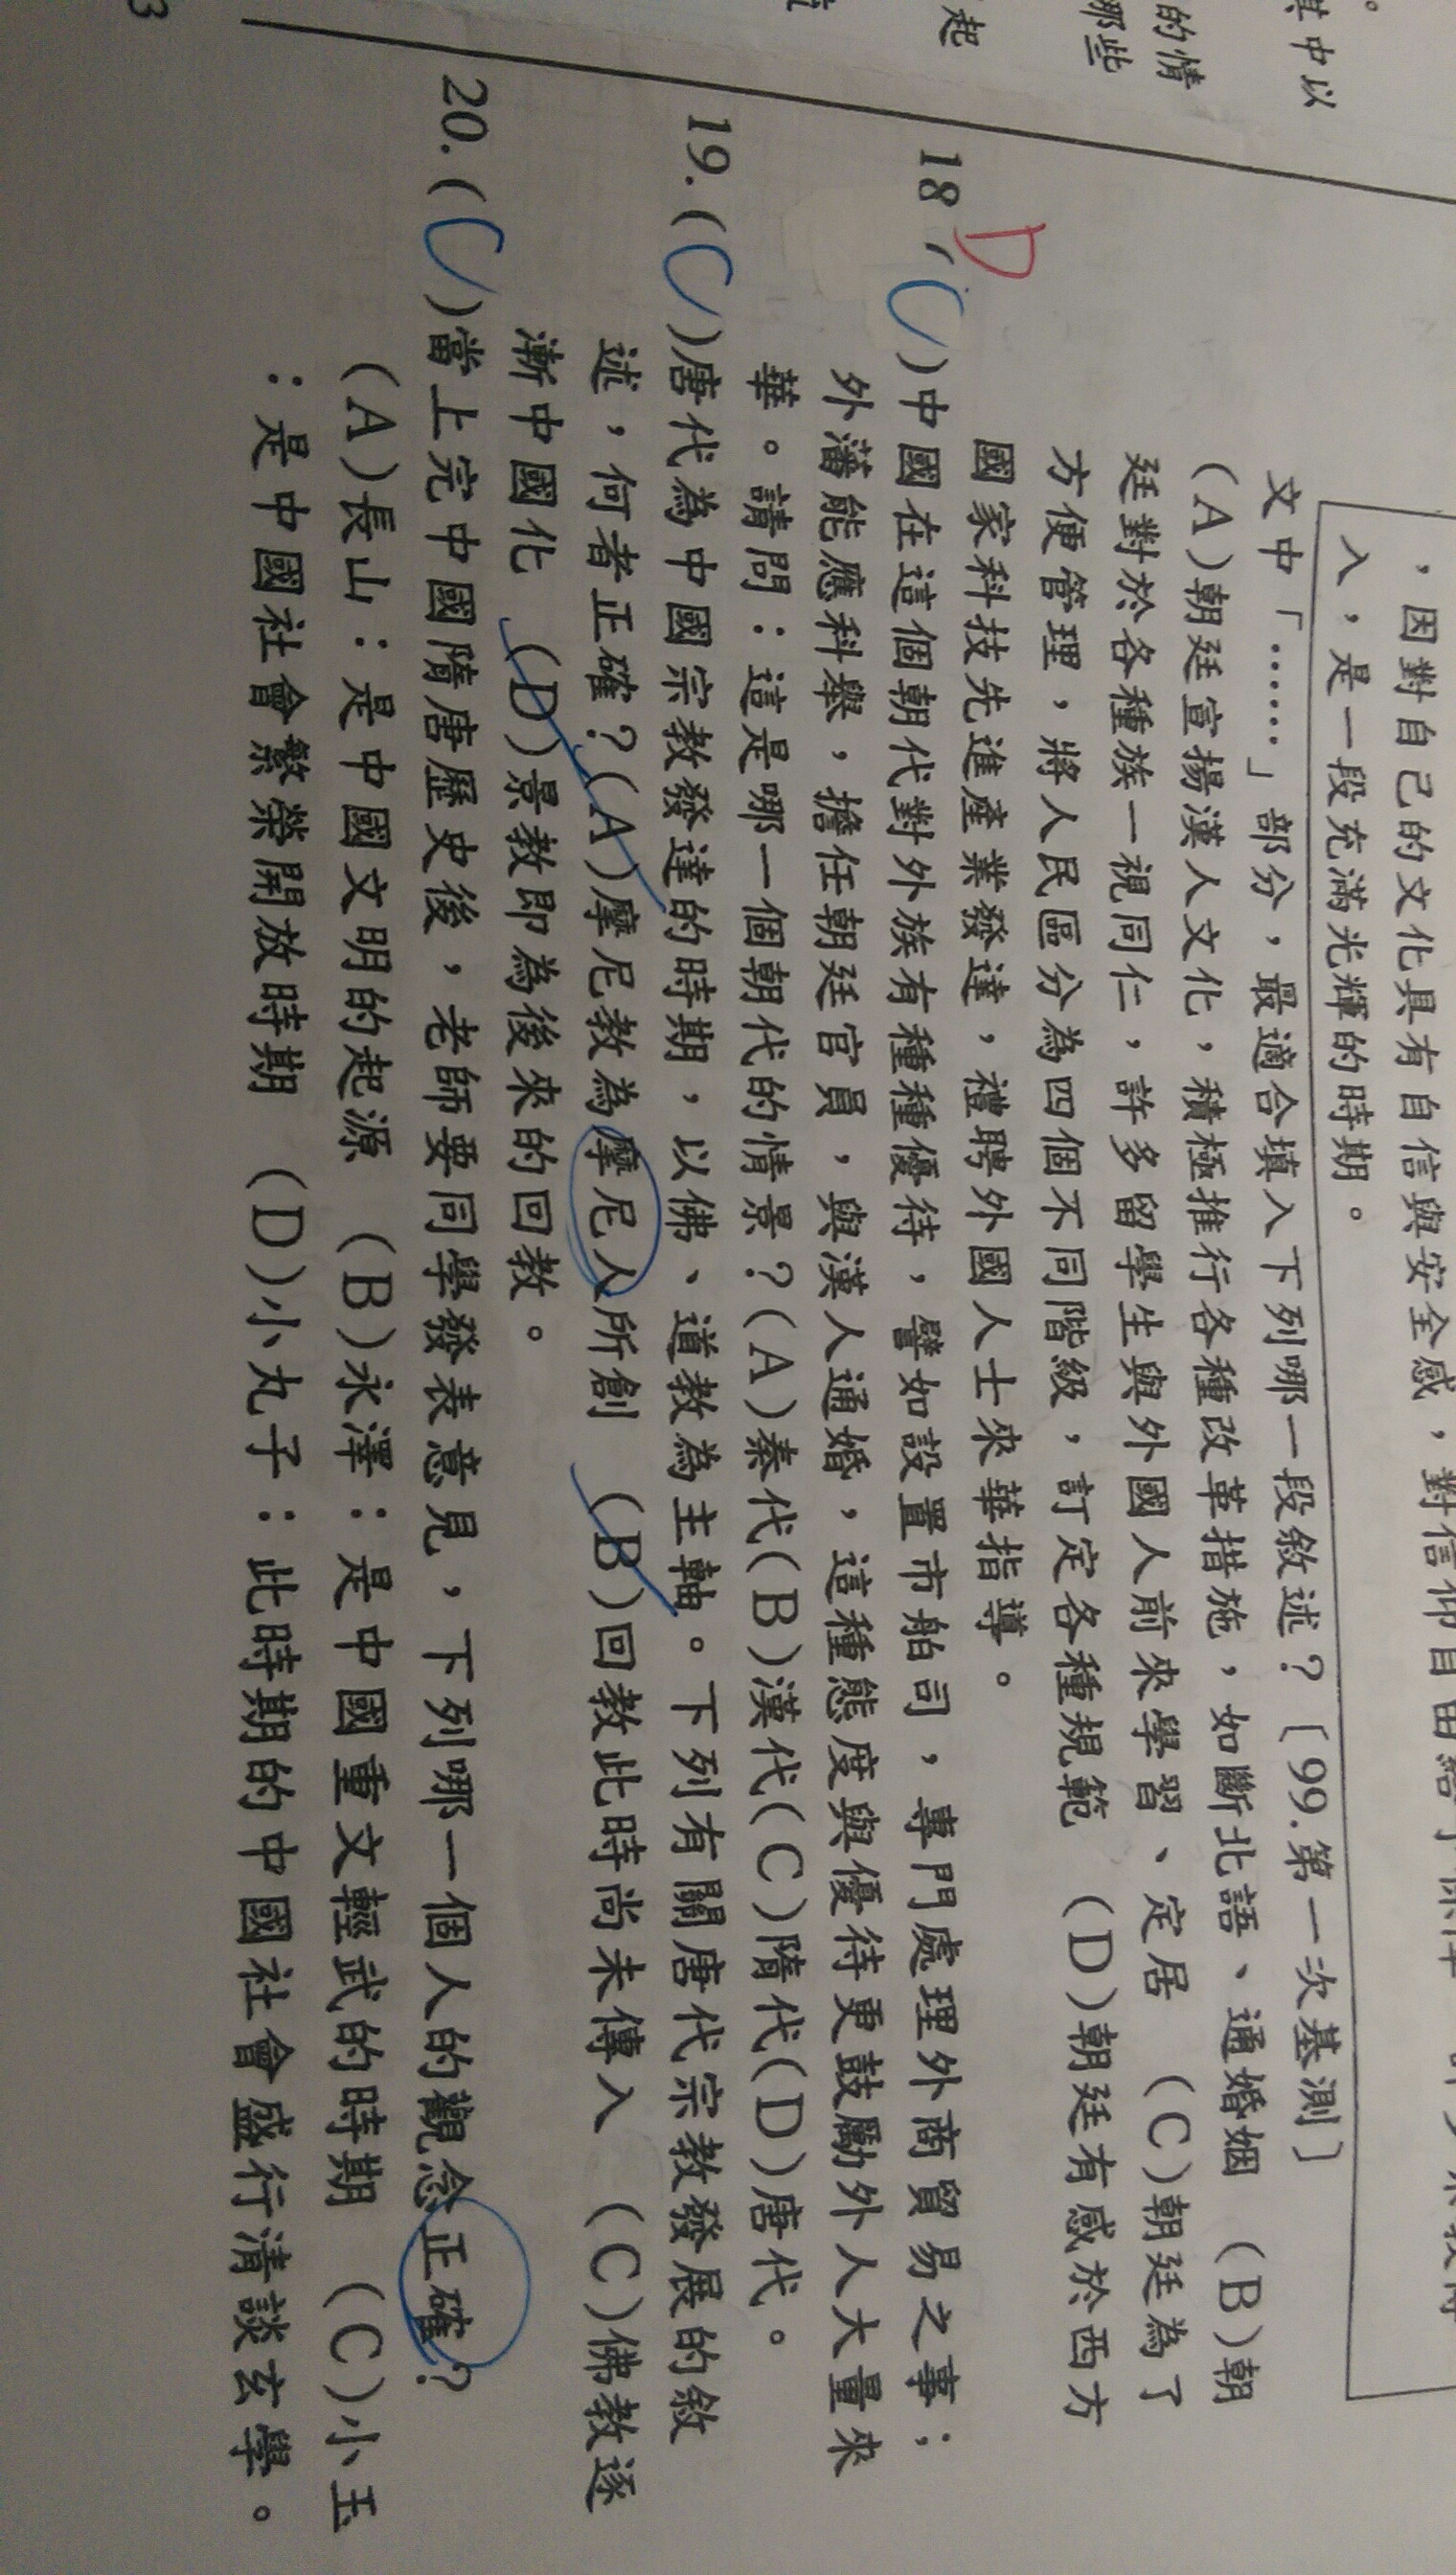 其中以
的情
哪些
起
，因對自己的文化具有自信與安全感，對信仰自由給予
入，是一段充滿光輝的時期。
文中「……」部分，最適合填入下列哪一段敘述？〔99.第一次基測〕
(A)朝廷宣揚漢人文化，積極推行各種改革措施，如斷北語、通婚姻 (B)朝
廷對於各種族一視同仁，許多留學生與外國人前來學習、定居 (C)朝廷為了
方便管理，將人民區分為四個不同階級，訂定各種規範 (D)朝廷有感於西方
國家科技先進產業發達，禮聘外國人士來華指導。
D
18 (C)中國在這個朝代對外族有種種優待，譬如設置市舶司，專門處理外商貿易之事；
外藩能應科舉，擔任朝廷官員，與漢人通婚，這種態度與優待更鼓勵外人大量來
華。請問：這是哪一個朝代的情景？(A)秦代(B)漢代(C)隋代(D)唐代。
19.(C)唐代為中國宗教發達的時期，以佛、道教為主軸。下列有關唐代宗教發展的敘
述，何者正確？(A)摩尼教為摩尼人所創 (B)回教此時尚未傳入 (C)佛教逐
漸中國化 (D)景教即為後來的回教。
20.(C)當上完中國隋唐歷史後，老師要同學發表意見，下列哪一個人的觀念正確？
(A)長山：是中國文明的起源 (B)永澤：是中國重文輕武的時期 (C)小玉
：是中國社會繁榮開放時期 (D)小丸子：此時期的中國社會盛行清談玄學。
3